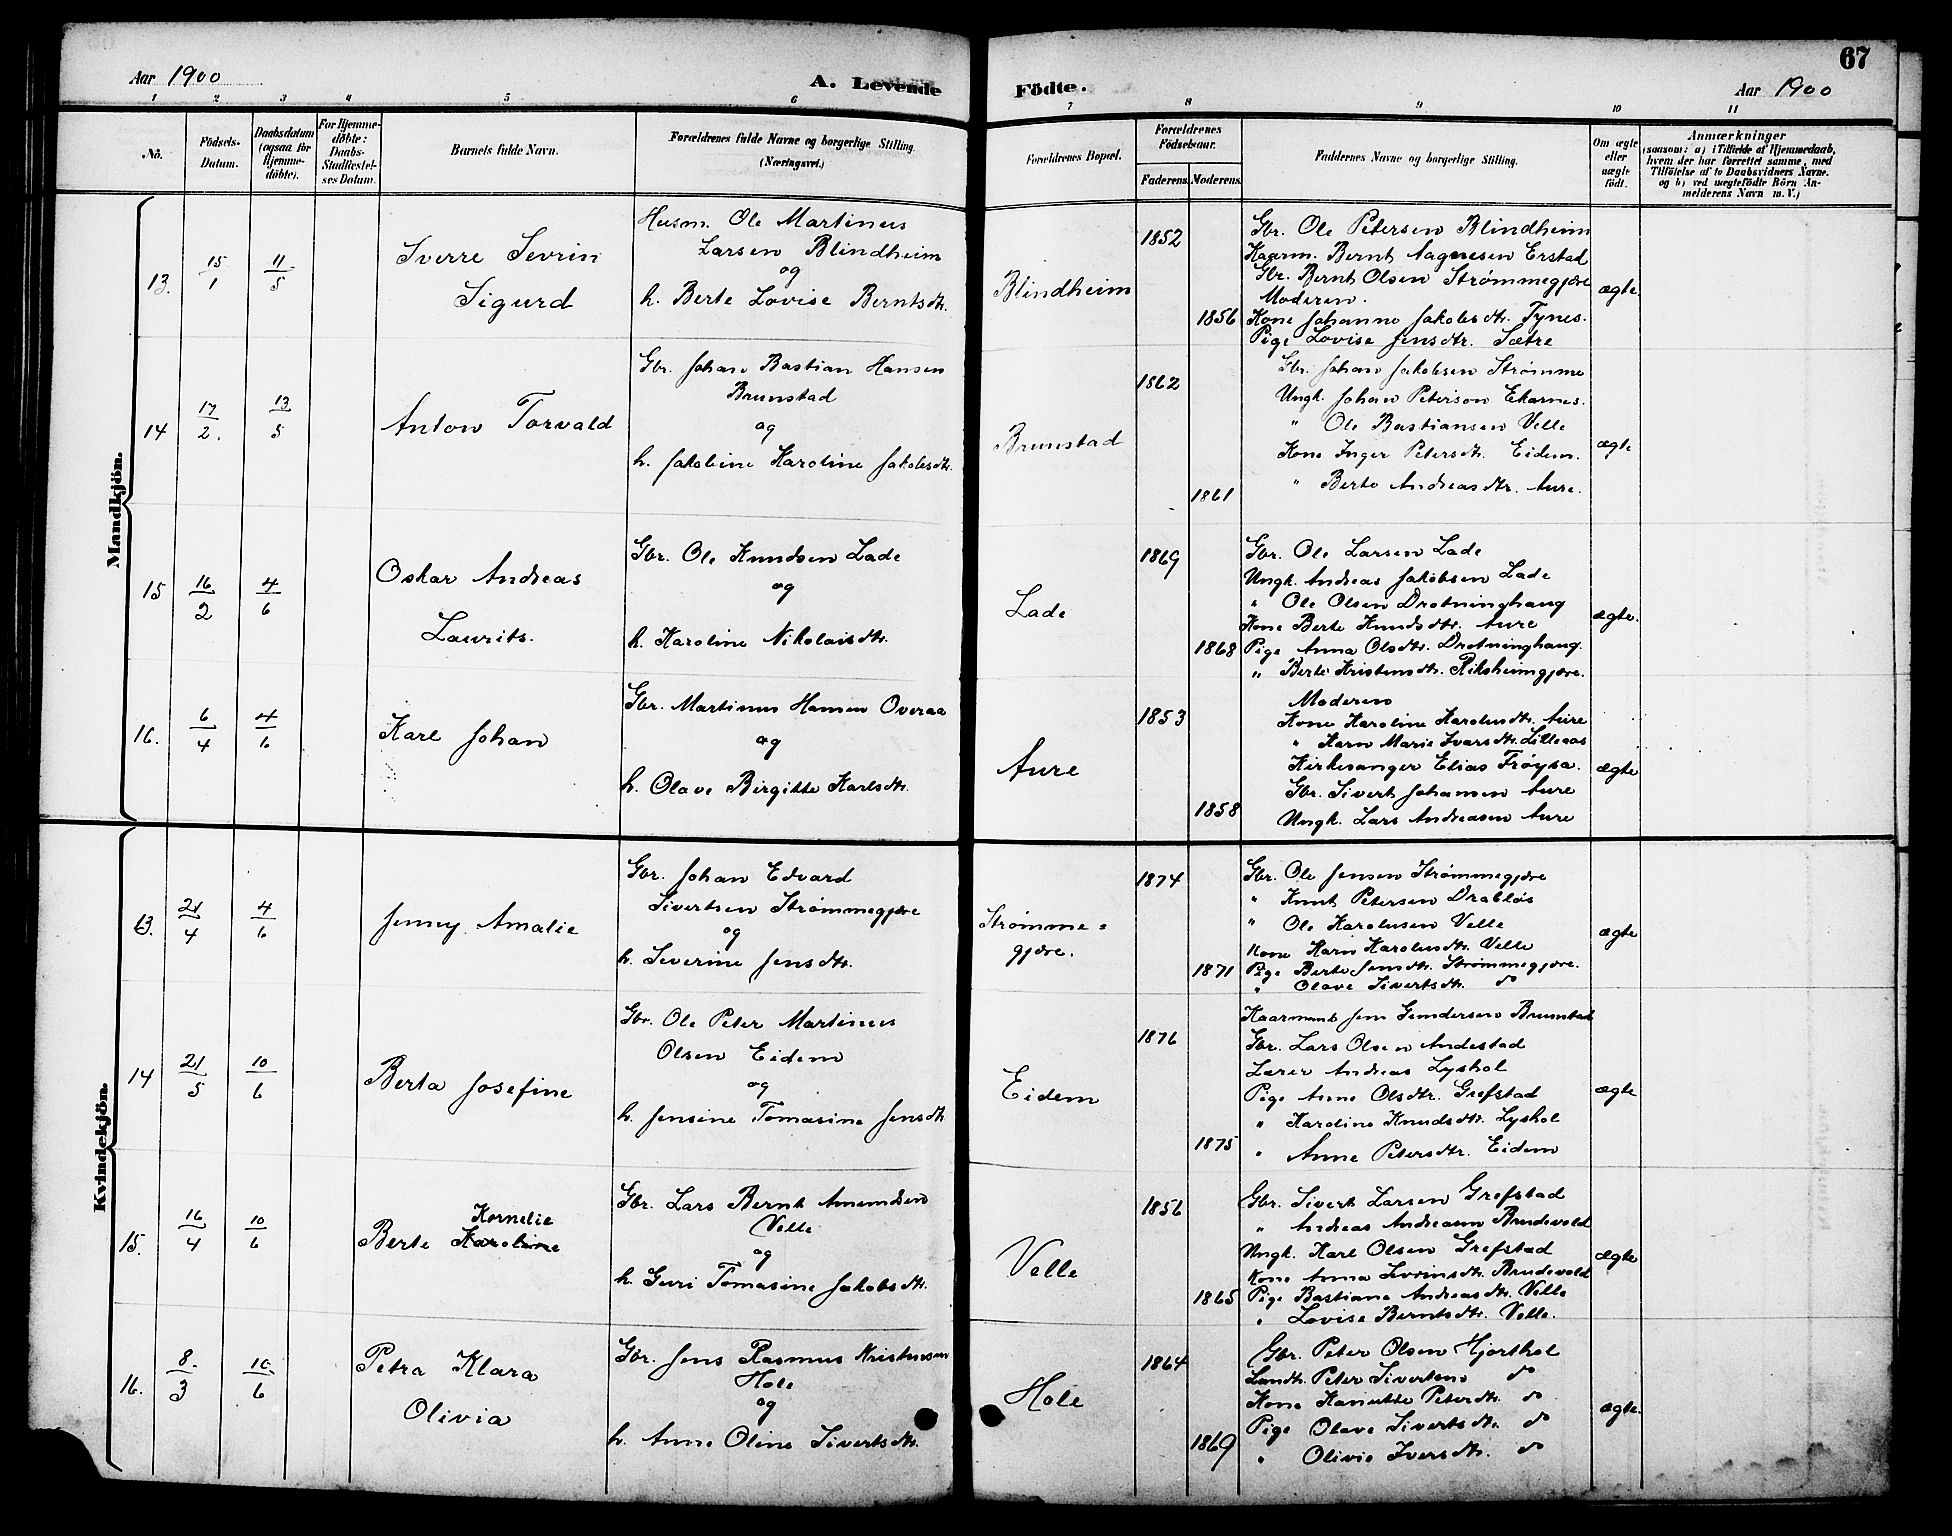 67
Aar 1900
A. Levende Födte.
Aar 1900
1 2 3 4 5 6 7 8 9 10 11
No.
Födsels-Datum.
Daabsdatum (ogsaa for Hjemme-döbte).
For Hjemme-döbte: Daabs-Stadfæstel-ses Datum.
Barnets fulde Navn.
Forældrenes fulde Navne og borgerlige Stilling. (Næringsvei.)
Forældrenes Bopæl.
Forældrenes Födselsaar.
Faderens. Moderens.
Faddernes Navne og borgerlige Stilling.
Om ægte eller uægte födt.
Anmærkninger
(saasom: a) i Tilfælde af Hjemmedaab, hvem der har forrettet samme, med Tilföielse af to Daabsvidners Navne. og b) ved uægtefödte Börn An-melderens Navn m. V.)
Mandkjön.
13. 15/1 11/5
Sverre Sevrin
Sigurd
Husm. Ole Martinus
Larsen Blindheim
og
h. Berte Lovise Berntsdtr.
Blindheim
1852
1856
Gbr. Ole Petersen Blindheim
Kaarm. Bernt Aagnesen Erstad
Gbr. Bernt Olsen Strømmegjære
Moderen.
Kone Johanne Jakobsdtr. Tynes.
Pige Lovise Jensdtr. Sætre
ægte.
14 17/2. 13/5
Anton Torvald
Gbr. Johan Bastian Hansen
Brunstad
og
h. Jakobine Karoline Jakobsdtr.
Brunstad
1862
1861
Gbr. Johan Jakobsen Strømme
Ungk. Johan Peterson Ekornes.
" Ole Bastiansen Velle
Kone Inger Petersdtr. Eidem.
" Berte Andreasdtr. Aure.
ægte
15 16/2 4/6
Oskar Andreas
Laurits.
Gbr. Ole Knudsen Lade
og
h. Karoline Nikolaisdtr.
Lade
1869
1868
Gbr. Ole Larsen Lade
Ungk. Andreas Jakobsen Lade
" Ole Olsen Drotninghaug
Kone Berte Knudsdtr. Aure
Pige Anna Olsdtr. Drotninghaug.
" Berte Kristensdtr. Riksheimgjære.
ægte.
16. 6/4 4/6
Karl Johan
Gbr. Martinus Hansen Overaa
og
h. Olave Birgitte Karlsdtr.
Aure
1853
1858
Moderen
Kone Karoline Karolusdtr. Aure
" Karn Marie Ivarsdtr. Lilleaas
Kirkesanger Elias Frøysa.
Gbr. Sivert Johansen Aure
Ungk. Lars Andreasen Aure
ægte
Kvindekjön.
13. 21/4 4/6
Jenny Amalie
Gbr. Johan Edvard
Sivertsen Strømmegjære
og
h. Severine Jensdtr.
Strømme=
gjære.
1874
1871
Gbr. Ole Jensen Strømmegjære
" Knut Petersen Drabløs
" Ole Karolusen Velle
Kone Karn Karolusdtr. Velle
Pige Berte Jensdtr. Strømmegjære.
" Olave Sivertsdtr. do
ægte
14 21/5 10/6
Berta Josefine
Gbr. Ole Peter Martinus
Olsen Eidem
og
h. Jensine Tomasine Jensdtr
Eidem
1876
1875
Kaarmand Jens Gundersen Brunstad
Gbr. Lars Olsen Andestad
Lærer Andreas Lyshol
Pige Anne Olsdtr. Grefstad
" Karoline Knudsdtr. Lyshol
" Anne Petersdtr. Eidem
ægte
15. 16/4 10/6
Kornelie
Berte Karoline
Gbr. Lars Bernt Amundsen
Velle
og
h. Guri Tomasine Jakobsdtr.
Velle
1856
1865
Gbr. Sivert Larsen Grefstad
" Andreas Andreasen Brudevold
Ungk. Karl Olsen Grefstad
Kone Anna Sevrinsdtr. Brudevold
Pige Bastiane Andreasdtr. Velle
" Lovise Berntsdtr. Velle.
Ægte
16. 8/3 10/6
Petra Klara
Olivia
Gbr. Jens Rasmus Kristensen
Hole
og
h. Anne Oline Sivertsdtr.
Hole
1864
1869
Gbr. Peter Olsen Hjorthol
Landh. Peter Sivertsen do
Kone Kanutte Petersdtr. do
Pige Olave Sivertsdtr. do
" Olivie Iversdtr. do
ægte.